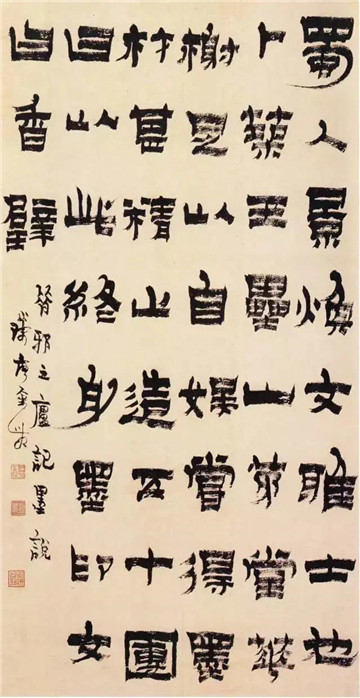 蜀人景煥文雅士也
卜築玉壘山茅堂華
榭足以自娛嘗得墨
材甚精止造五十團
曰以此終身墨印文
曰香璧
昔邪之廬記墨說
錢唐金農